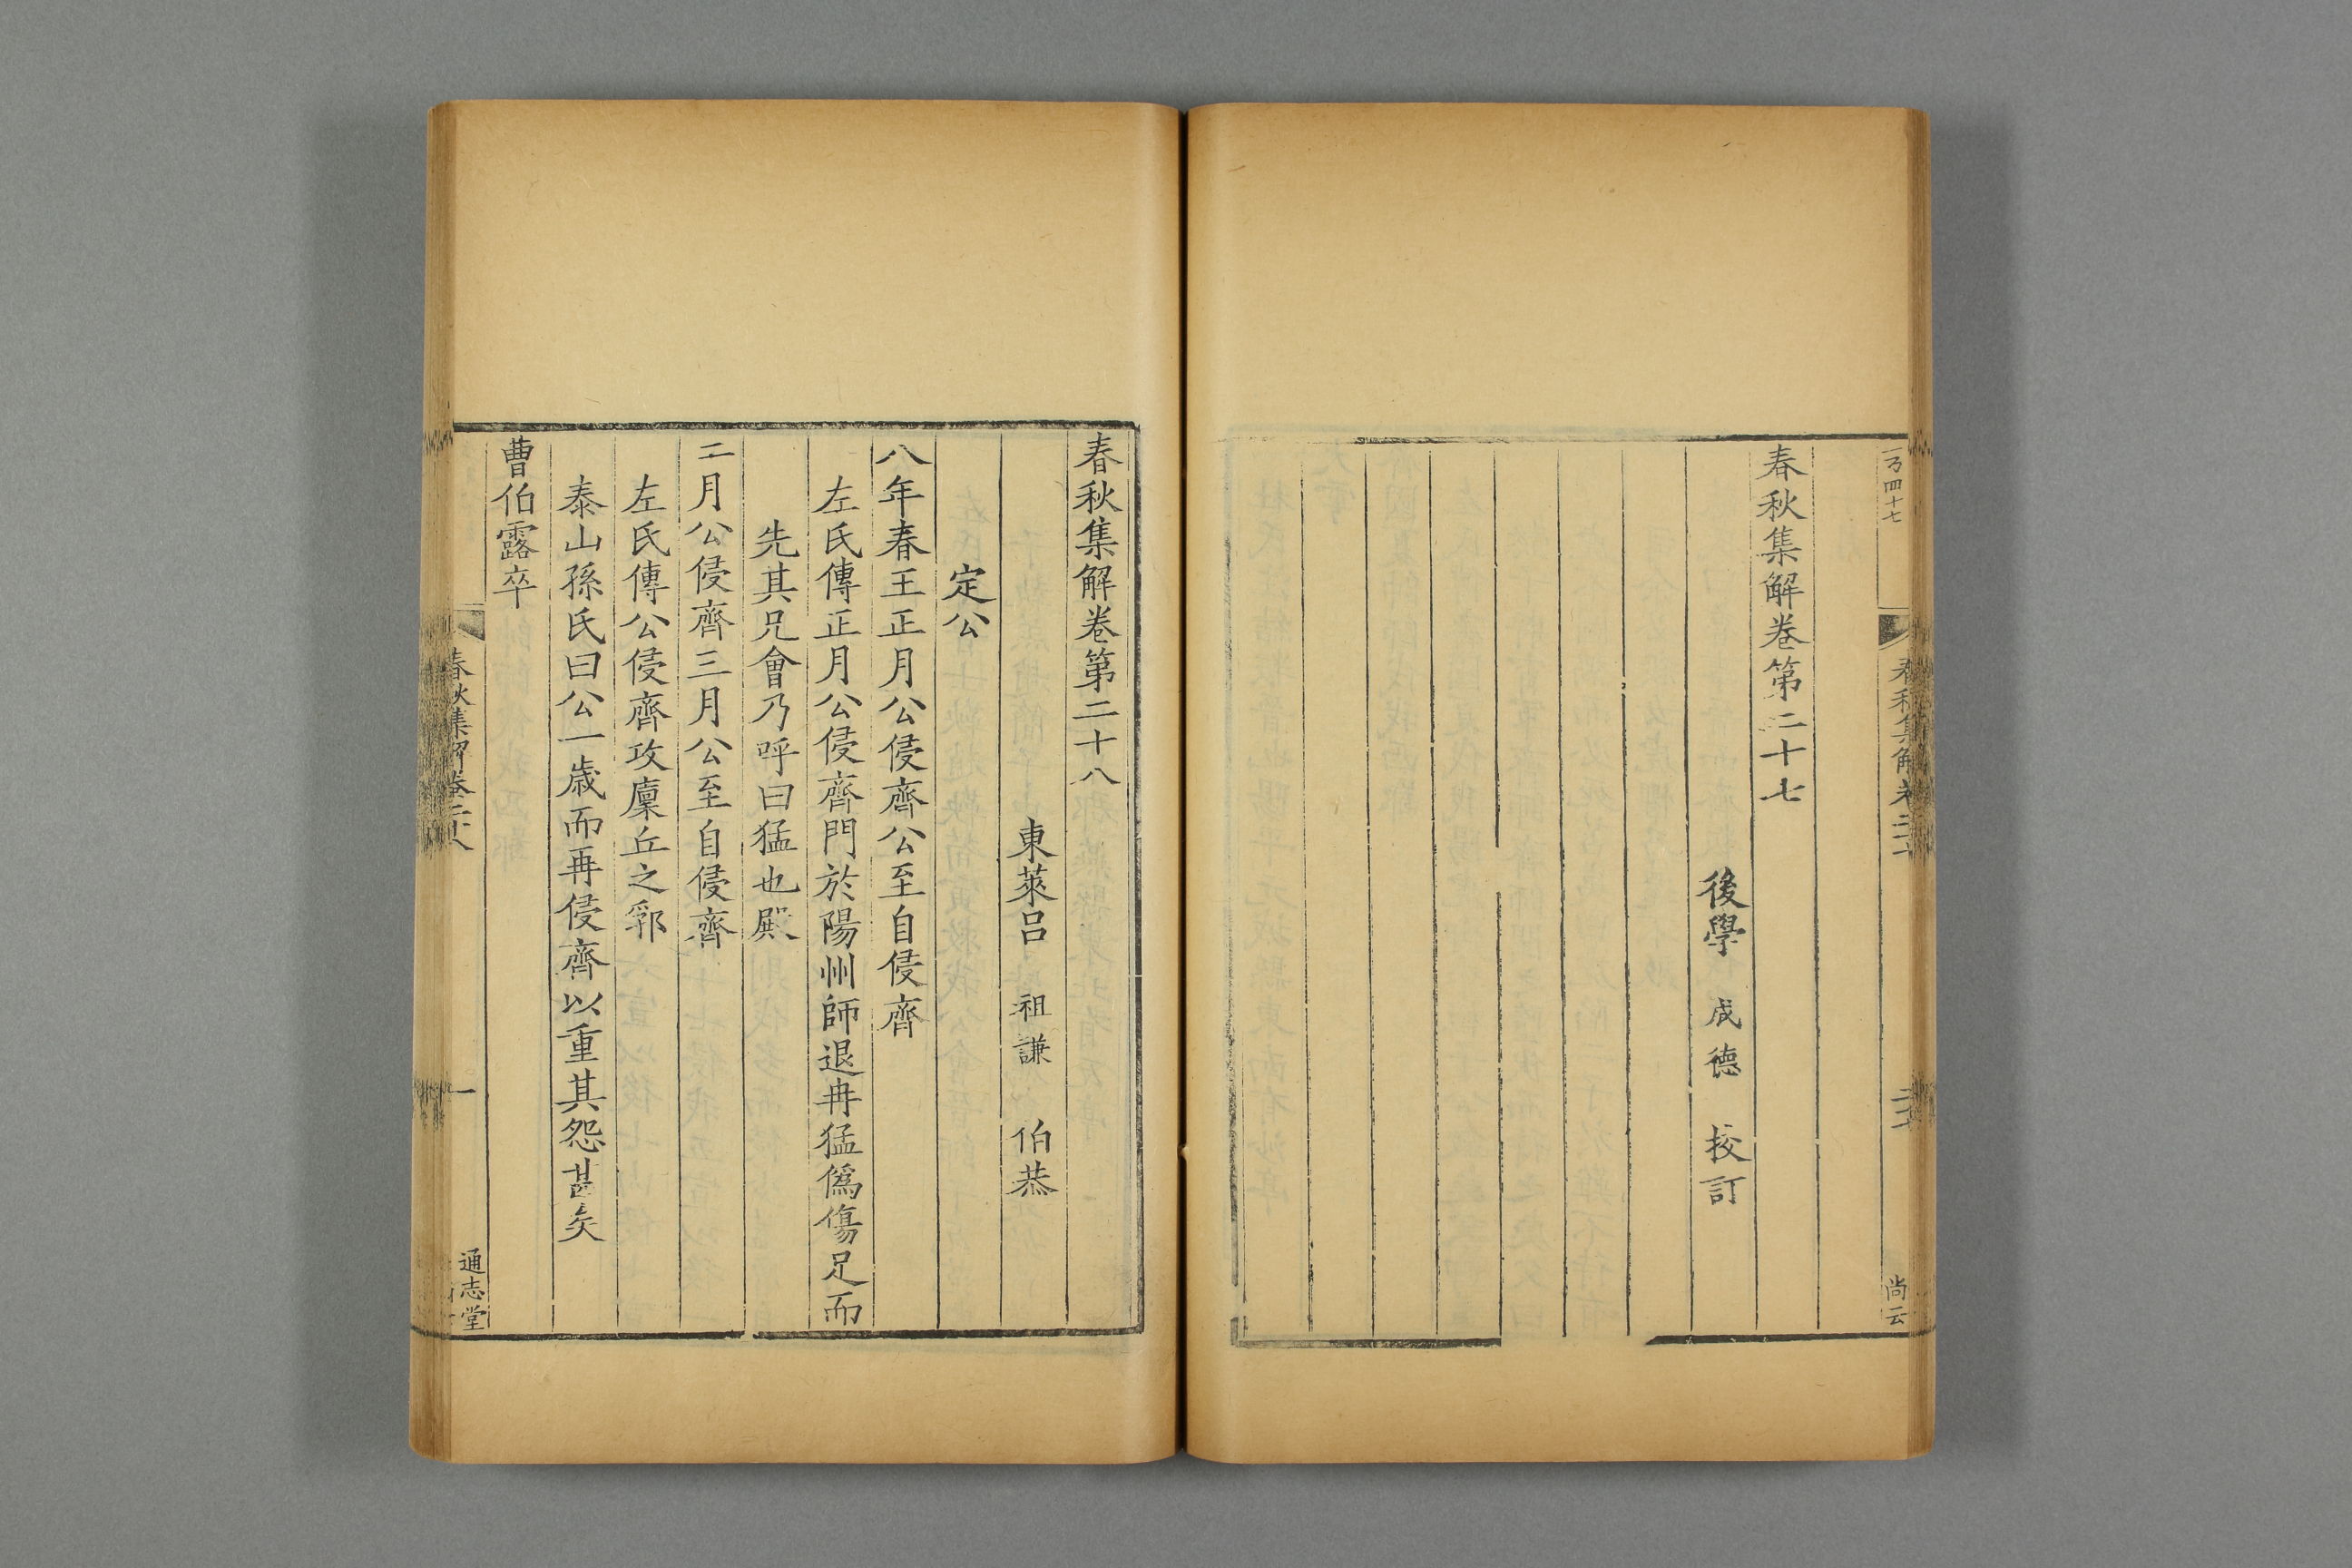 春秋集解卷第二十七
後學 成德 校訂
尚云
春秋集解卷第二十八
東萊呂 祖謙 伯恭
定公
八年春王正月公侵齊公至自侵齊
左氏傳正月公侵齊門於陽州師退冉猛僞傷足而
先其兄會乃呼曰猛也殿
二月公侵齊三月公至自侵齊
左氏傳公侵齊攻廩丘之郛
泰山孫氏曰公一歲而再侵齊以重其怨甚矣
曹伯露卒
春秋集解卷二十八
一
通志堂